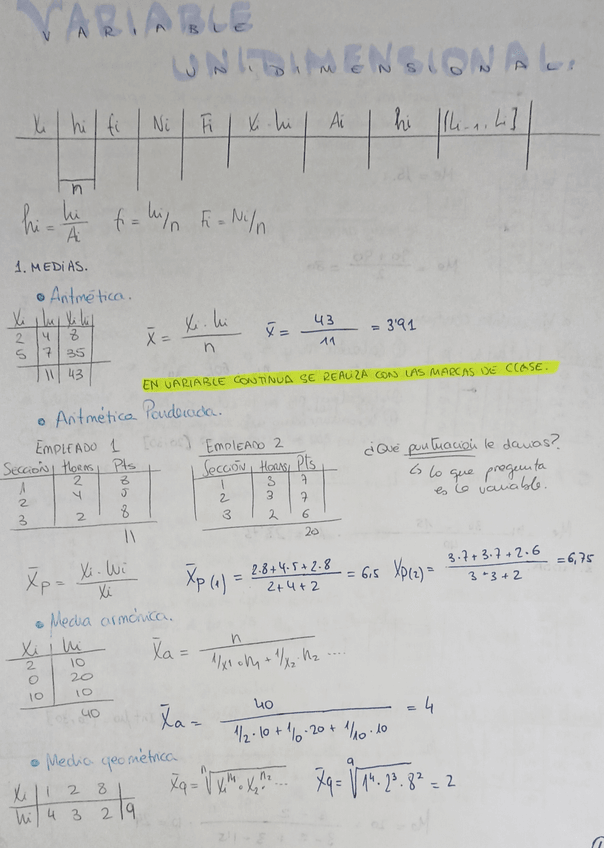 VARIABLE
VARIABLE
UNIDIMENSIONAL.
UNIDIMENSIONAL.
Xi | hi | fi | Ni | Fi | Xi·hi | Ai | hi | [Li-1, Li]
n
hi = hi/Ai fi = hi/n Fi = Ni/n
1. MEDIAS.
• Aritmética.
Xi | hi | Xi hi
2 | 4 | 8
5 | 7 | 35
11 | 43
X̄ = Xi·hi / n X̄ = 43 / 11 = 3'91
EN VARIABLE CONTINUA SE REALIZA CON LAS MARCAS DE CLASE.
• Aritmética Ponderada.
EMPLEADO 1
Sección | Horas | Pts
1 | 2 | 8
2 | 4 | 5
3 | 2 | 8
11
EMPLEADO 2
Sección | Horas | Pts
1 | 3 | 7
2 | 3 | 7
3 | 2 | 6
20
¿Qué puntuación le damos?
↳ lo que pregunta
es la variable.
X̄p = Xi·Wi / Xi X̄p(1) = 2·8+4·5+2·8 / 2+4+2 = 6,5 Xp(2) = 3·7+3·7+2·6 / 3+3+2 = 6,75
• Media armónica.
Xi | hi
2 | 10
0 | 20
10 | 10
40
X̄a = n / 1/x1·n1 + 1/x2·n2 ....
X̄a = 40 / 1/2·10 + 1/0·20 + 1/10·10 = 4
• Media geométrica
Xi | 1 2 8
hi | 4 3 2 | 9
X̄q = ⁿ√X1ⁿ¹·X2ⁿ²... X̄q = ⁹√1⁴·2³·8² = 2